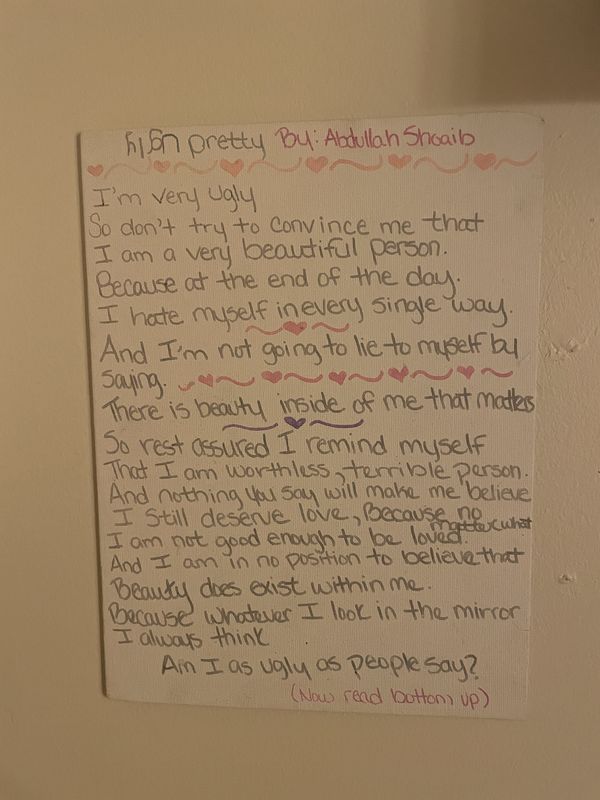 ugly pretty By: Abdullah Shoaib
I'm very ugly
So don't try to convince me that
I am a very beautiful person.
Because at the end of the day.
I hate myself in every single way.
And I'm not going to lie to myself by
saying.
There is beauty inside of me that matters
So rest assured I remind myself
That I am worthless, terrible person.
And nothing you say will make me believe
I still deserve love, Because no
matter what
I am not good enough to be loved.
And I am in no position to believe that
Beauty does exist within me.
Because whatever I look in the mirror
I always think
Am I as ugly as people say?
(Now read bottom up)